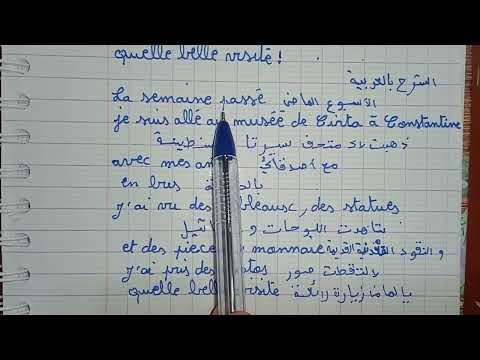 quelle belle visite!
الشرح بالعربية
La semaine passé الأسبوع الماضي
je suis allé au musée de Cirta à Constantine
ذهبت إلى متحف سيرتا
avec mes مع أصدقائي
en bus
j'ai vu des des statues
شاهدت اللوحات و
et des pièces monnaie و النقود القديمة
j'ai pris des التقطت صور
quelle visite يالها من زيارة رائعة